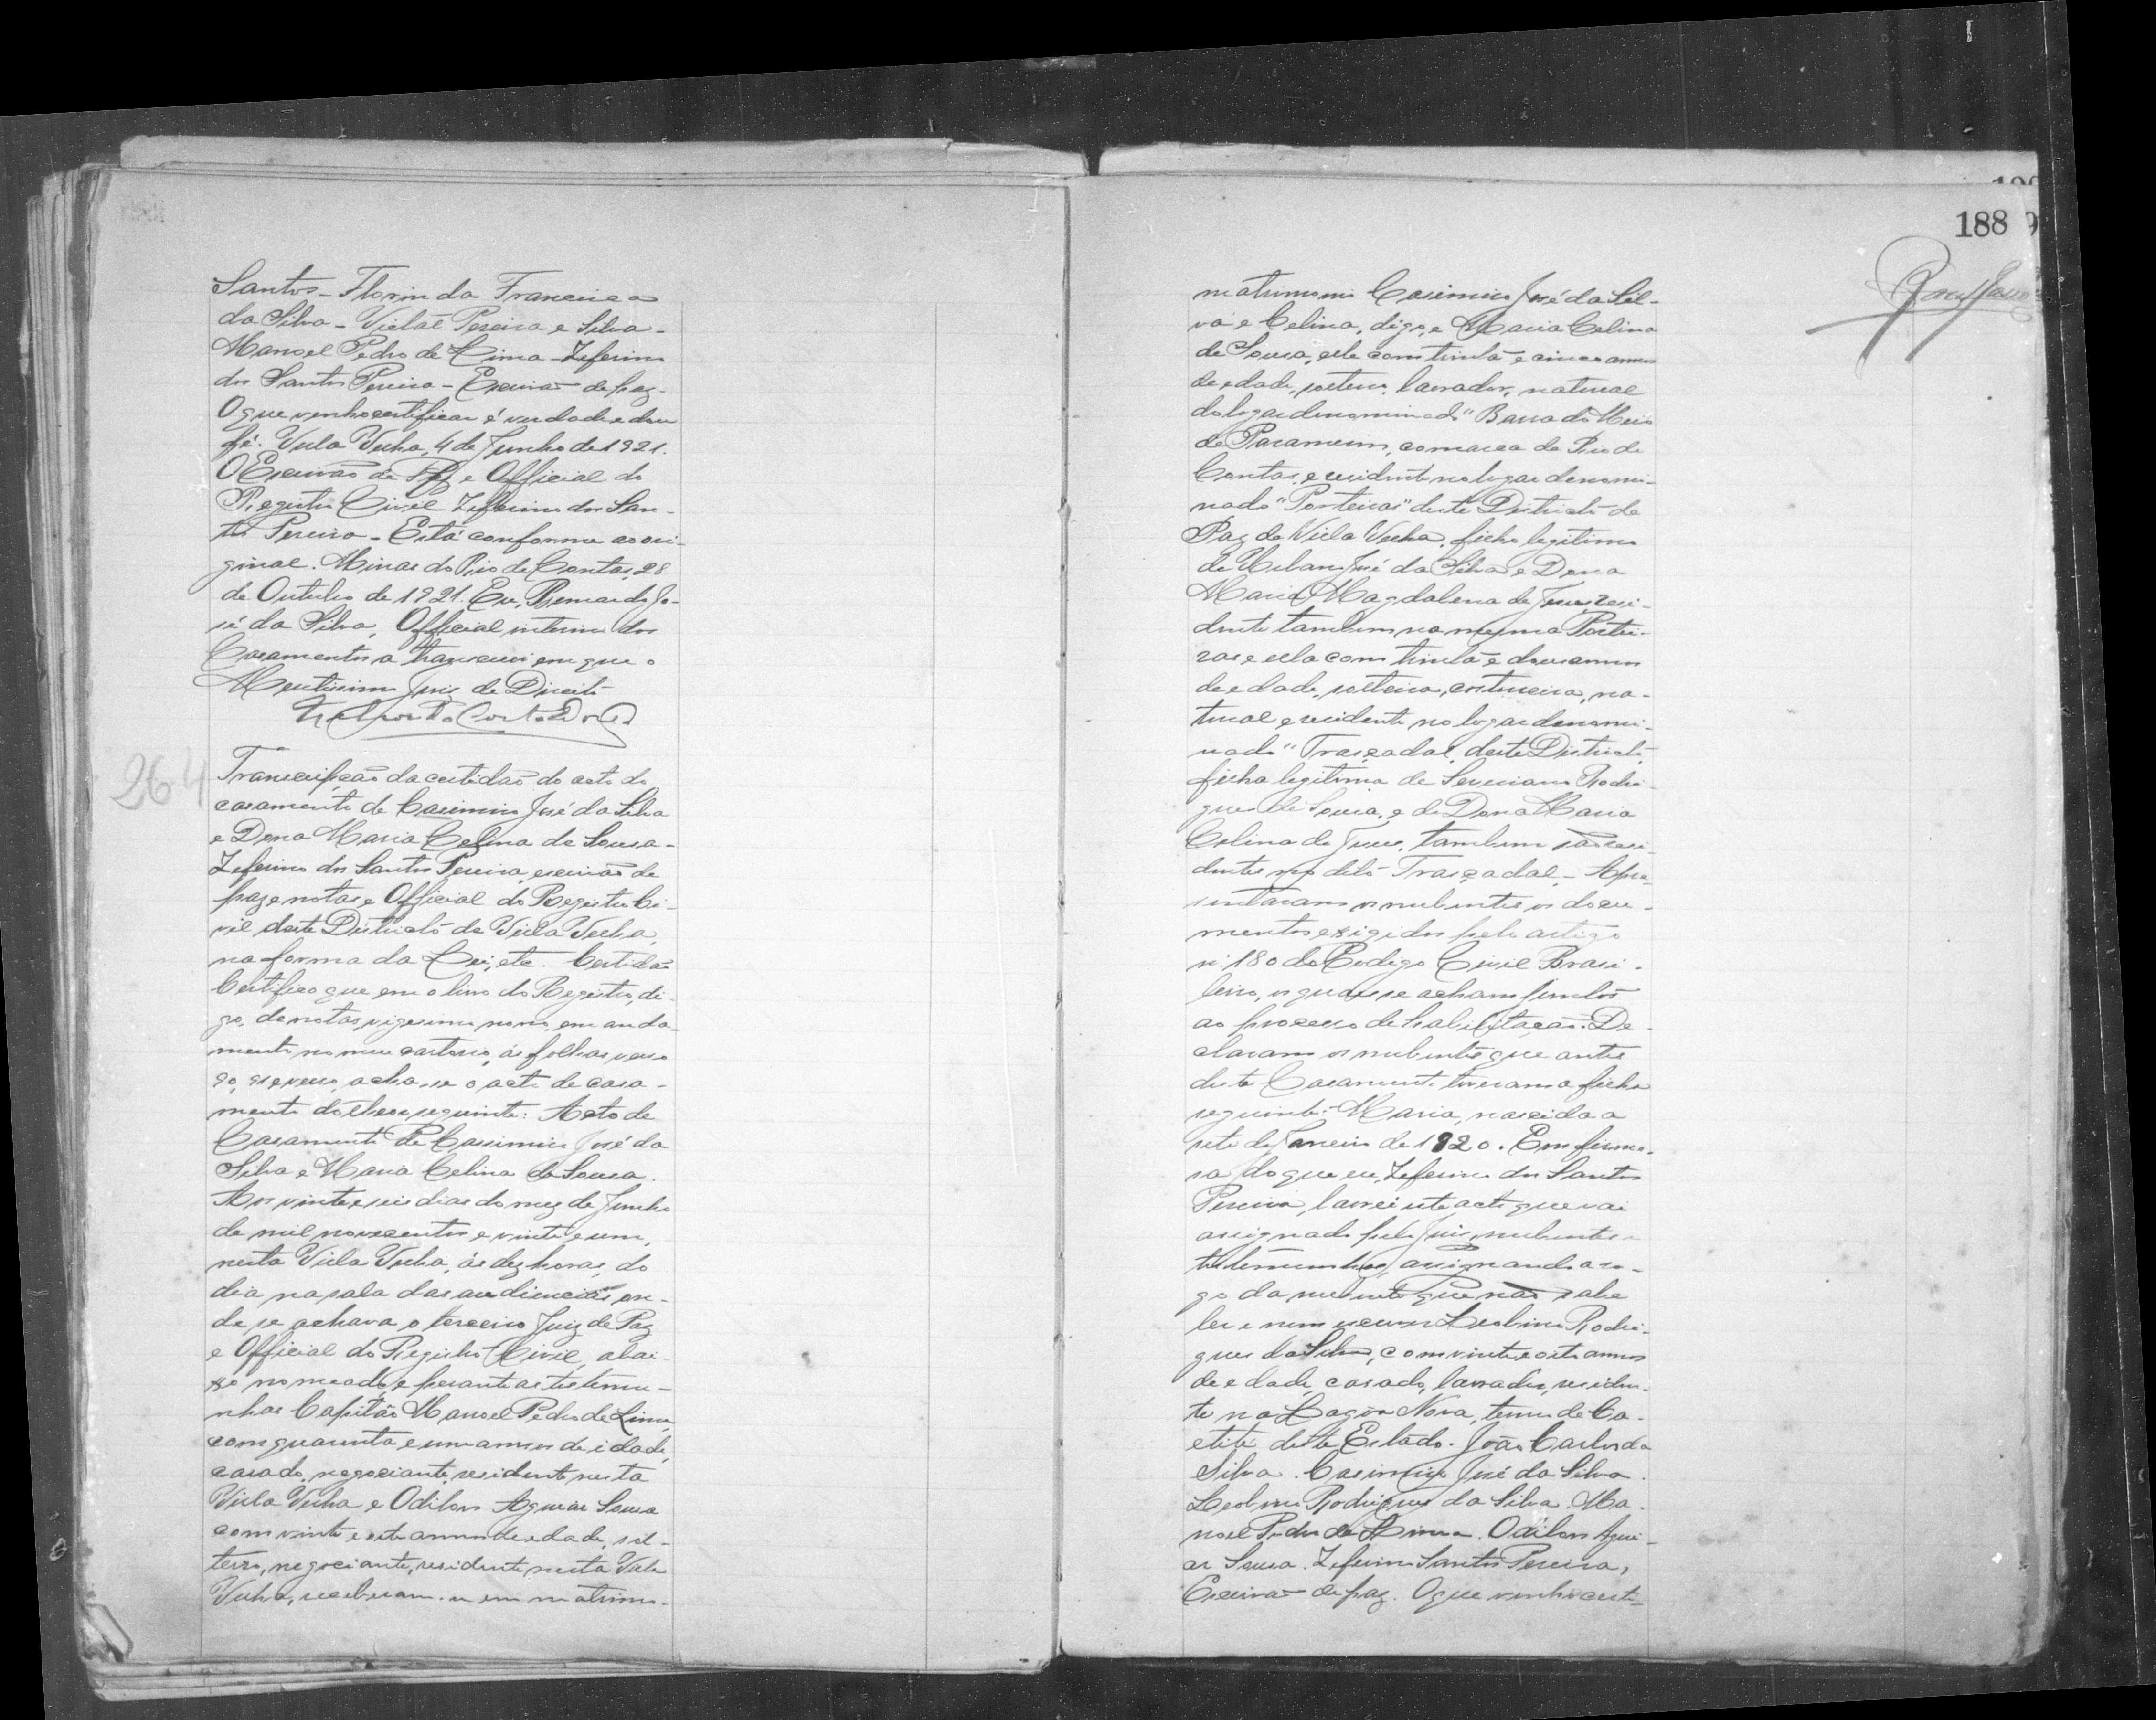 Santos - Florinda Francisca
da Silva - Vidál Pereira e Silva -
Manoel Pedro de Lima - Zeferino
dos Santos Pereira - Escrivão de paz -
O que venho certificar é verdade e dou
fé. Villa Velha, 4 de Junho de 1921.
O Escrivão de Paz e Official do
Registro Civil Zeferino dos San-
tos Pereira - Está conforme ao ori-
ginal. Minas do Rio de Contas, 28
de Outubro de 1921. Eu, Bernardo Jo-
sé da Silva, Official interino dos
Casamentos a transcrevi em que o
Meritissimo Juiz de Direito
264
Transcripção da certidão do acto do
casamento de Casimiro José da Silva
e Dona Maria Celina de Sousa -
Zeferino dos Santos Pereira, escrivão de
paz e notas e Official do Registro Ci-
vil deste Districto de Villa Velha,
na forma da Lei, etc. Certidão
Certifico que em o livro do Registro, di-
go, de notas, vigesimo nono, em anda-
mento no meu cartorio, ás folhas verso
go, e verso, acha-se o acto de casa-
mento do theor seguinte: Acto de
Casamento de Cassimiro José da
Silva e Maria Celina de Sousa.
Aos vinte e seis dias do mez de Junho
de mil novecentos e vinte e um,
nesta Villa Velha, ás dez horas, do
dia na sala das audiencias on-
de se achava o terceiro Juiz de Paz
e Official do Registro Civil, abai-
xo nomeado, e perante as testemu-
nhas Capitão Manoel Pedro de Lima,
com quarenta e um annos de idade,
casado, negociante, residente nesta
Villa Velha e Odilon Aguiar Sousa
com vinte e sete annos de edade, sol-
teiro, negociante, residente nesta Villa
Velha, receberam-se em matrimo-
188
matrimonio Casimiro José da Sil-
va e Celina, digo, e Maria Celina
de Sousa, elle com trinta e cinco annos
de edade, solteiro, lavrador, natural
do logar denominado "Barra do Meio
de Paramirim, comarca de Rio de
Contas, e residente no logar denomi-
nado "Porteiras" deste Districto de
Paz de Villa Velha, filho legitimo
de Urbano José da Silva e Dona
Maria Magdalena de Jesus, resi-
dente tambem na mesma Portei-
ras e ella com trinta e dous annos
de edade, solteira, costureira, na-
tural e residente no logar denomi-
nado "Trascadal, deste Districto,
filha legitima de Severiano Rodri-
gues de Sousa, e de Dona Maria
Celina de Jesus, tambem são resi-
dentes no dito Trascadal - Apre-
sentaram os nubentes os docu-
mentos exigidos pelo artigo
n: 180 do Codigo Civil Brasi-
leiro, os quaes se acham juntos
ao processo de habilitação. De-
claram os nubentes que antes
deste Casamento tiveram a filha
seguinte: Maria, nascida a
sete de Janeiro de 1920. Em firme-
sa do que eu, Zeferino dos Santos
Pereira, lavrei este acto que vai
assignado pelo Juiz, nubentes e
testemunhas, assignando a ro-
go da nubente que não sabe
ler e nem escrever Leobino Rodri-
gues da Silva, com vinte e oito annos
de edade, casado, lavrador, residen-
te na Lagôa Nova, termo de Ca-
etité deste Estado. João Carlos da
Silva. Casimiro José da Silva.
Leobino Rodrigues da Silva. Ma-
noel Pedro de Lima. Odilon Agui-
ar Sousa. Zeferino Santos Pereira,
Escrivão de paz. O que venho certi-